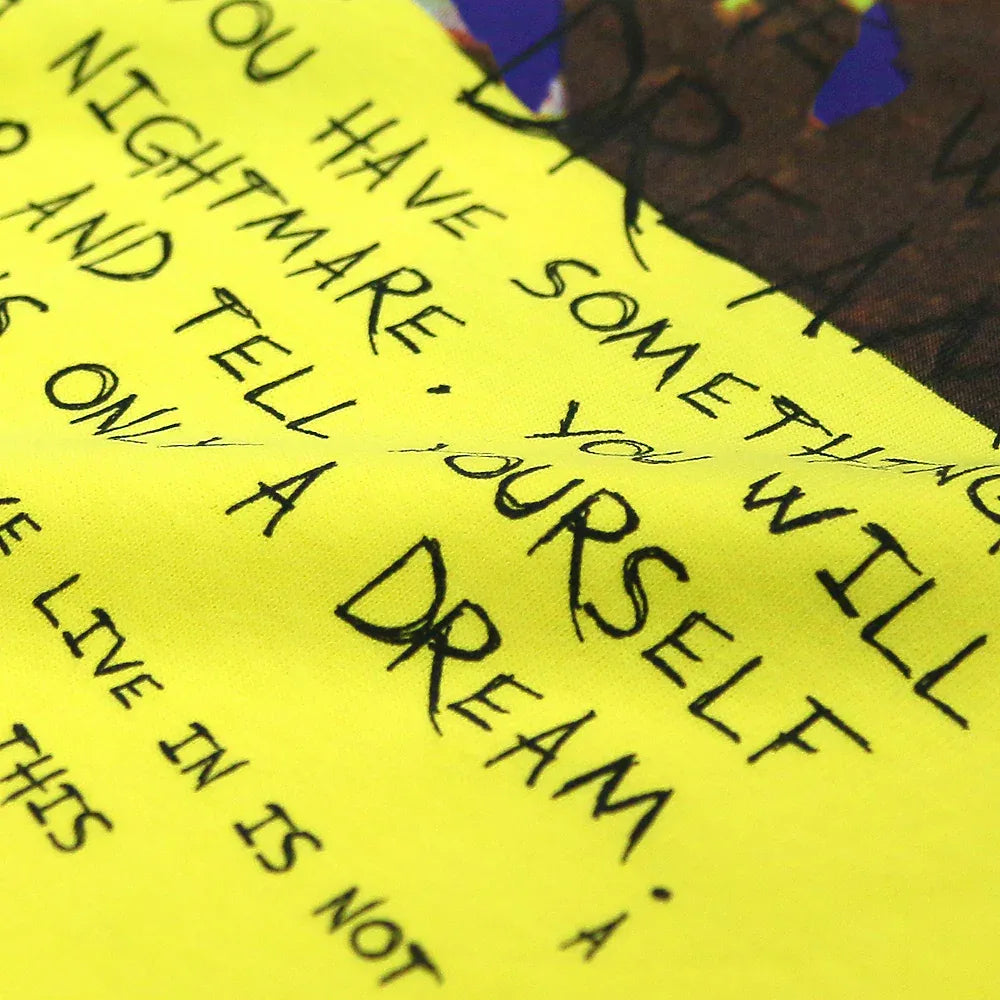 YOU HAVE SOMETHING
NIGHTMARE. YOU WILL
AND TELL YOURSELF
ONLY A DREAM. A
LIVE IN IS NOT
THIS